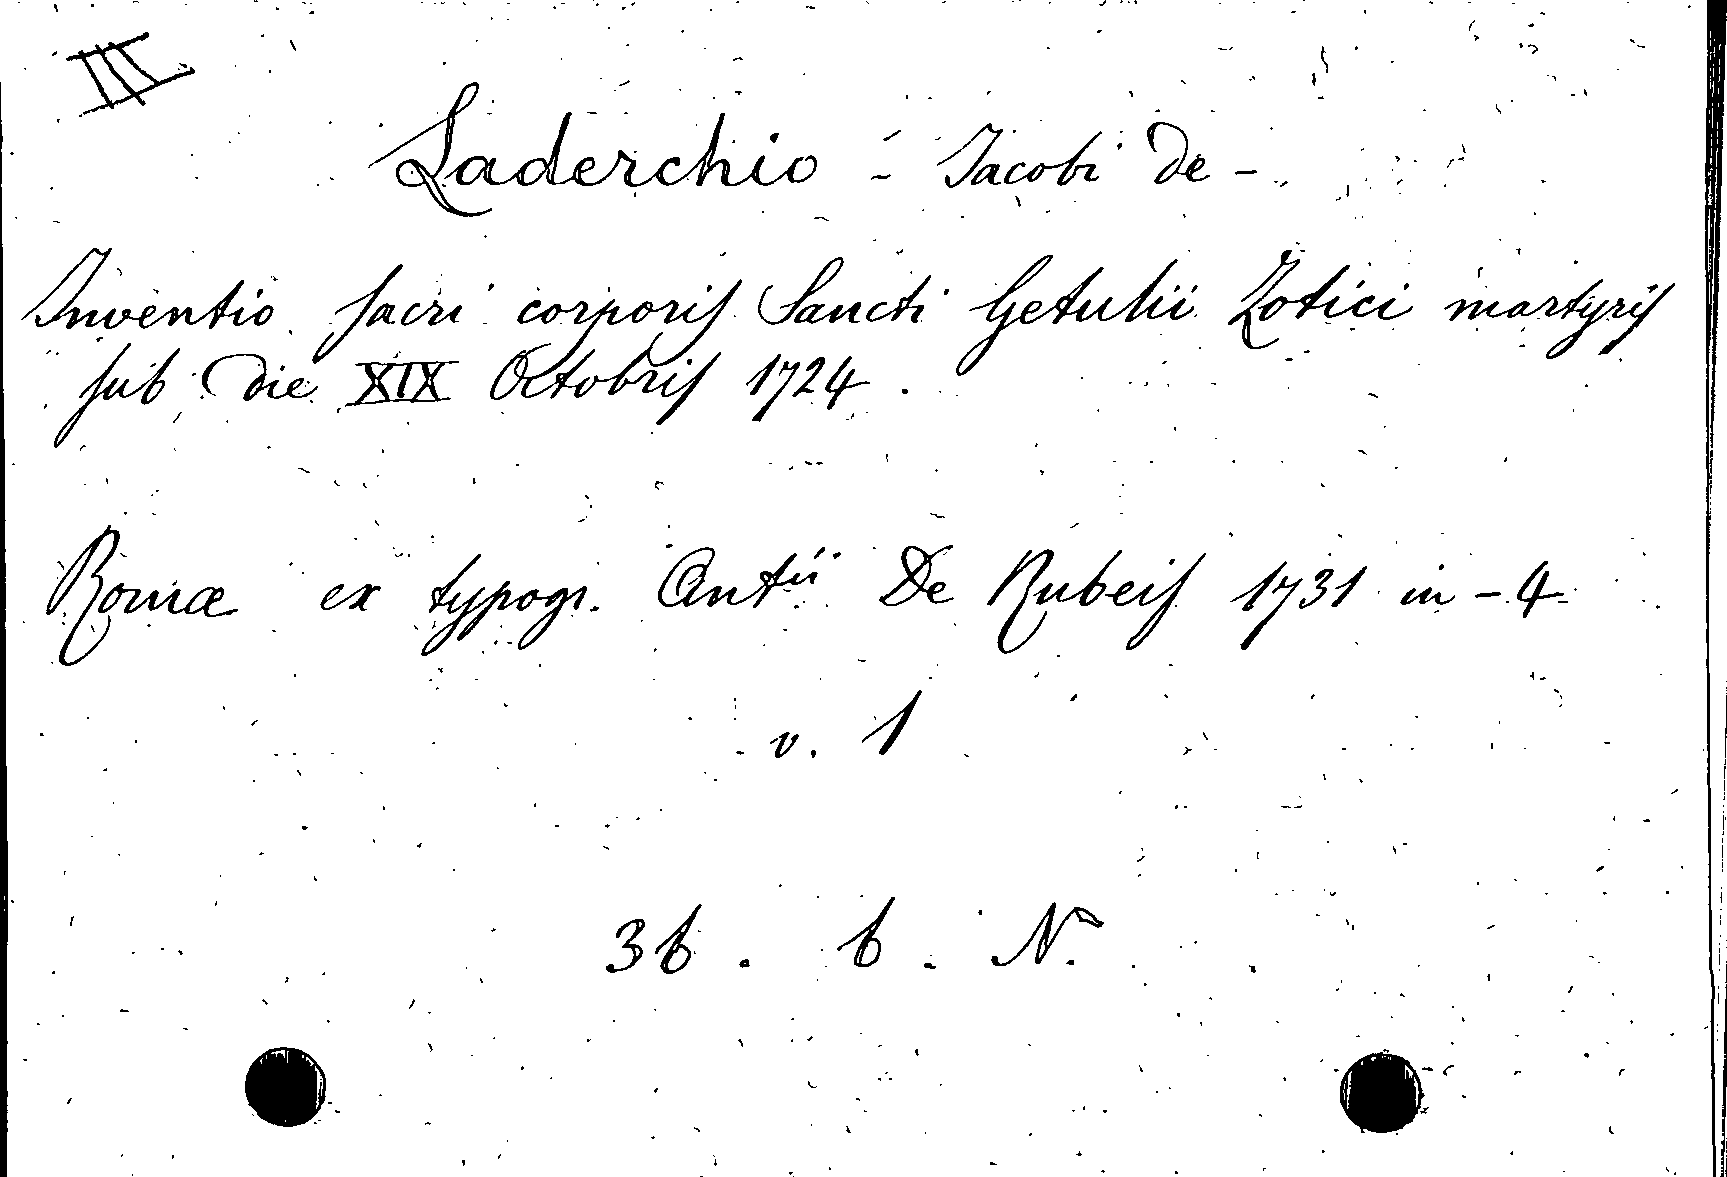 III
Laderchio - Jacobi De -
Inventio sacri corporis Sancti Getulii Zotici martyris
sub die XIX Octobris 1724.
Romæ ex typogr. Antii De Rubeis 1731 in-4
v. 1
36. 6. N.